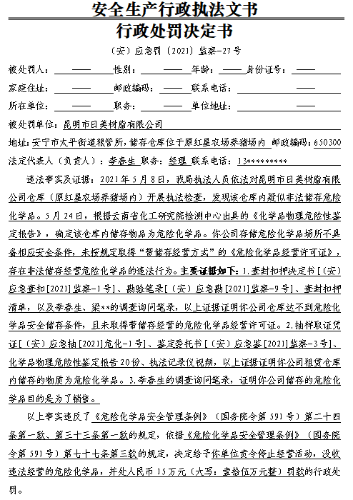 安全生产行政执法文书
行政处罚决定书
（安）应急罚〔2021〕监察-27号
被处罚人： —— 性别： —— 年龄： —— 身份证号： ——
家庭住址： —— 邮政编码： —— 联系电话： ——
所在单位： —— 职务： —— 单位地址： ——
被处罚单位：昆明市日英树脂有限公司
地址：安宁市太平街道粮管所，储存仓库位于原红星农场养猪场内 邮政编码：650300
法定代表人（负责人）：李春生 职务：经理 联系电话：13*********
违法事实及证据：2021年5月8日，我局执法人员依法对昆明市日英树脂有限
公司仓库（原红星农场养猪场内）开展执法检查，发现该仓库内疑似非法储存危险
化学品。5月24日，根据云南省化工研究院检测中心出具的《化学品物理危险性鉴
定报告》，确定该仓库内储存物品为危险化学品。你公司存储危险化学品场所不具
备相应安全条件，未按规定取得“带储存经营方式”的《危险化学品经营许可证》，
存在非法储存经营危险化学品的违法行为。主要证据如下：1.查封扣押决定书[（安）
应急查扣[2021]监察-1号]、勘验笔录[（安）应急勘[2021]监察-9号]、查封扣押
清单，以及李春生、梁**的调查询问笔录，以上证据证明你公司仓库达不到危险化
学品安全储存条件，且未取得带储存经营的危险化学品经营许可证。2.抽样取证凭
证[（安）应急抽[2021]危化-1号]、鉴定委托书[（安）应急鉴[2021]监察-3号]、
化学品物理危险性鉴定报告20份、执法记录仪视频，以上证据证明你公司租赁仓库
内储存的物质为危险化学品。3.李春生的调查询问笔录，证明你公司储存的危险化
学品目的是为了销售。
以上事实违反了《危险化学品安全管理条例》（国务院令第591号）第二十四
条第一款、第三十三条第一款的规定，依据《危险化学品安全管理条例》（国务院
令第591号）第七十七条第三款的规定，决定给予你单位责令停止经营活动，没收
违法经营的危险化学品，并处人民币15万元（大写：壹拾伍万元整）罚款的行政处
罚。